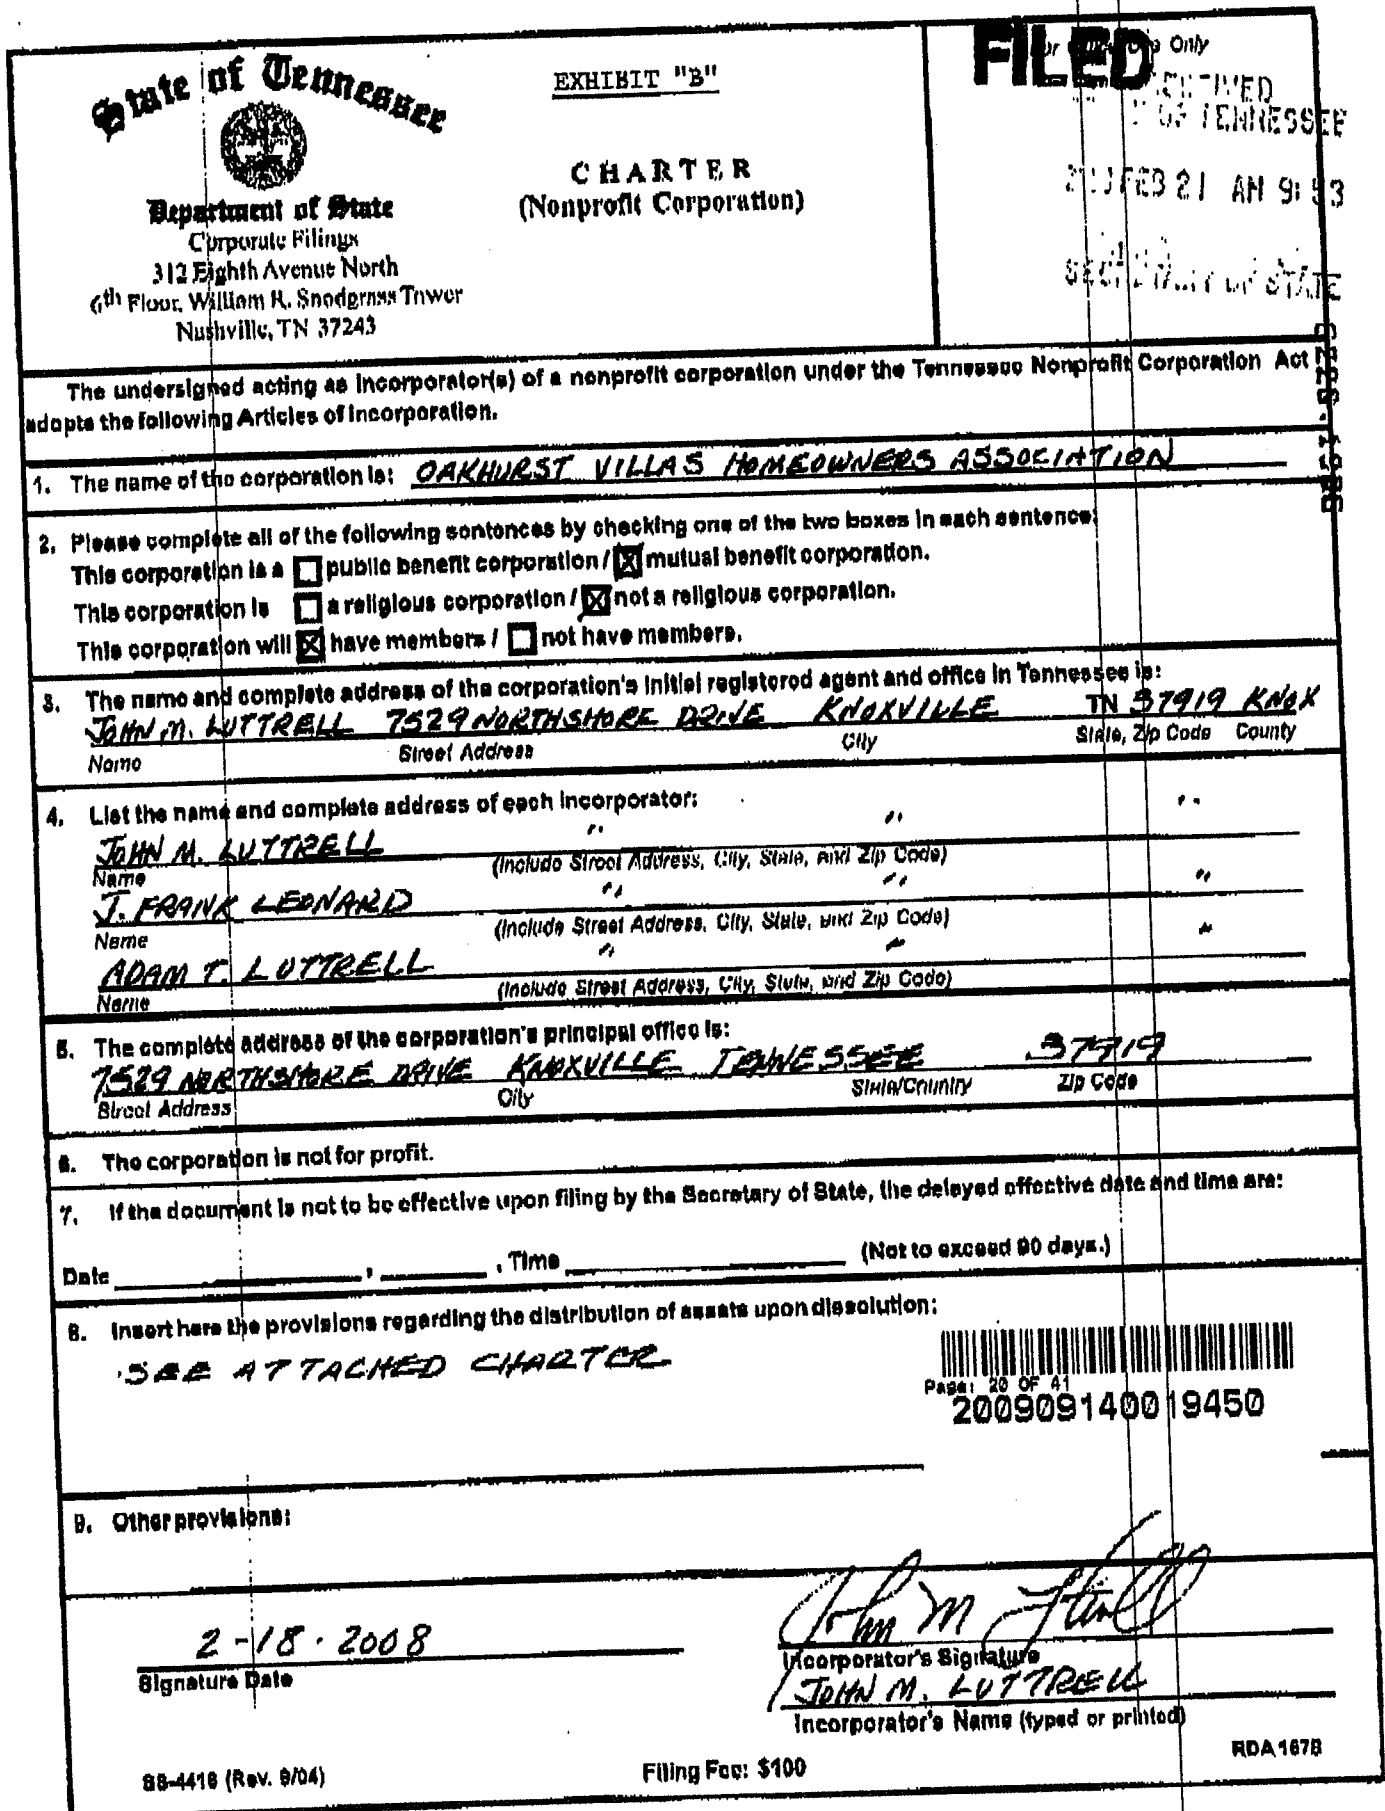 State of Tennessee
Department of State
Corporate Filings
312 Eighth Avenue North
6th Floor, William R. Snodgrass Tower
Nashville, TN 37243
EXHIBIT "B"
CHARTER
(Nonprofit Corporation)
FILED
Only
OF TENNESSEE
FEB 21 AM 9:53
SECRETARY OF STATE
The undersigned acting as incorporator(s) of a nonprofit corporation under the Tennessee Nonprofit Corporation Act
adopts the following Articles of Incorporation.
1. The name of the corporation is: OAKHURST VILLAS HOMEOWNERS ASSOCIATION
2. Please complete all of the following sentences by checking one of the two boxes in each sentence:
This corporation is a ☐ public benefit corporation / ☒ mutual benefit corporation.
This corporation is ☐ a religious corporation / ☒ not a religious corporation.
This corporation will ☒ have members / ☐ not have members.
3. The name and complete address of the corporation's initial registered agent and office in Tennessee is:
JOHN M. LUTTRELL 7529 NORTHSHORE DRIVE KNOXVILLE TN 37919 KNOX
Name Street Address City State, Zip Code County
4. List the name and complete address of each incorporator:
JOHN M. LUTTRELL " " "
Name (Include Street Address, City, State, and Zip Code)
J. FRANK LEONARD " " "
Name (Include Street Address, City, State, and Zip Code)
ADAM T. LUTTRELL " " "
Name (Include Street Address, City, State, and Zip Code)
5. The complete address of the corporation's principal office is:
7529 NORTHSHORE DRIVE KNOXVILLE TENNESSEE 37919
Street Address City State/Country Zip Code
6. The corporation is not for profit.
7. If the document is not to be effective upon filing by the Secretary of State, the delayed effective date and time are:
Date , , Time (Not to exceed 90 days.)
8. Insert here the provisions regarding the distribution of assets upon dissolution:
SEE ATTACHED CHARTER
Page: 20 OF 41
200909140019450
9. Other provisions:
2-18-2008
Signature Date
John M Luttrell
Incorporator's Signature
JOHN M. LUTTRELL
Incorporator's Name (typed or printed)
SS-4418 (Rev. 9/04)
Filing Fee: $100
RDA 1678